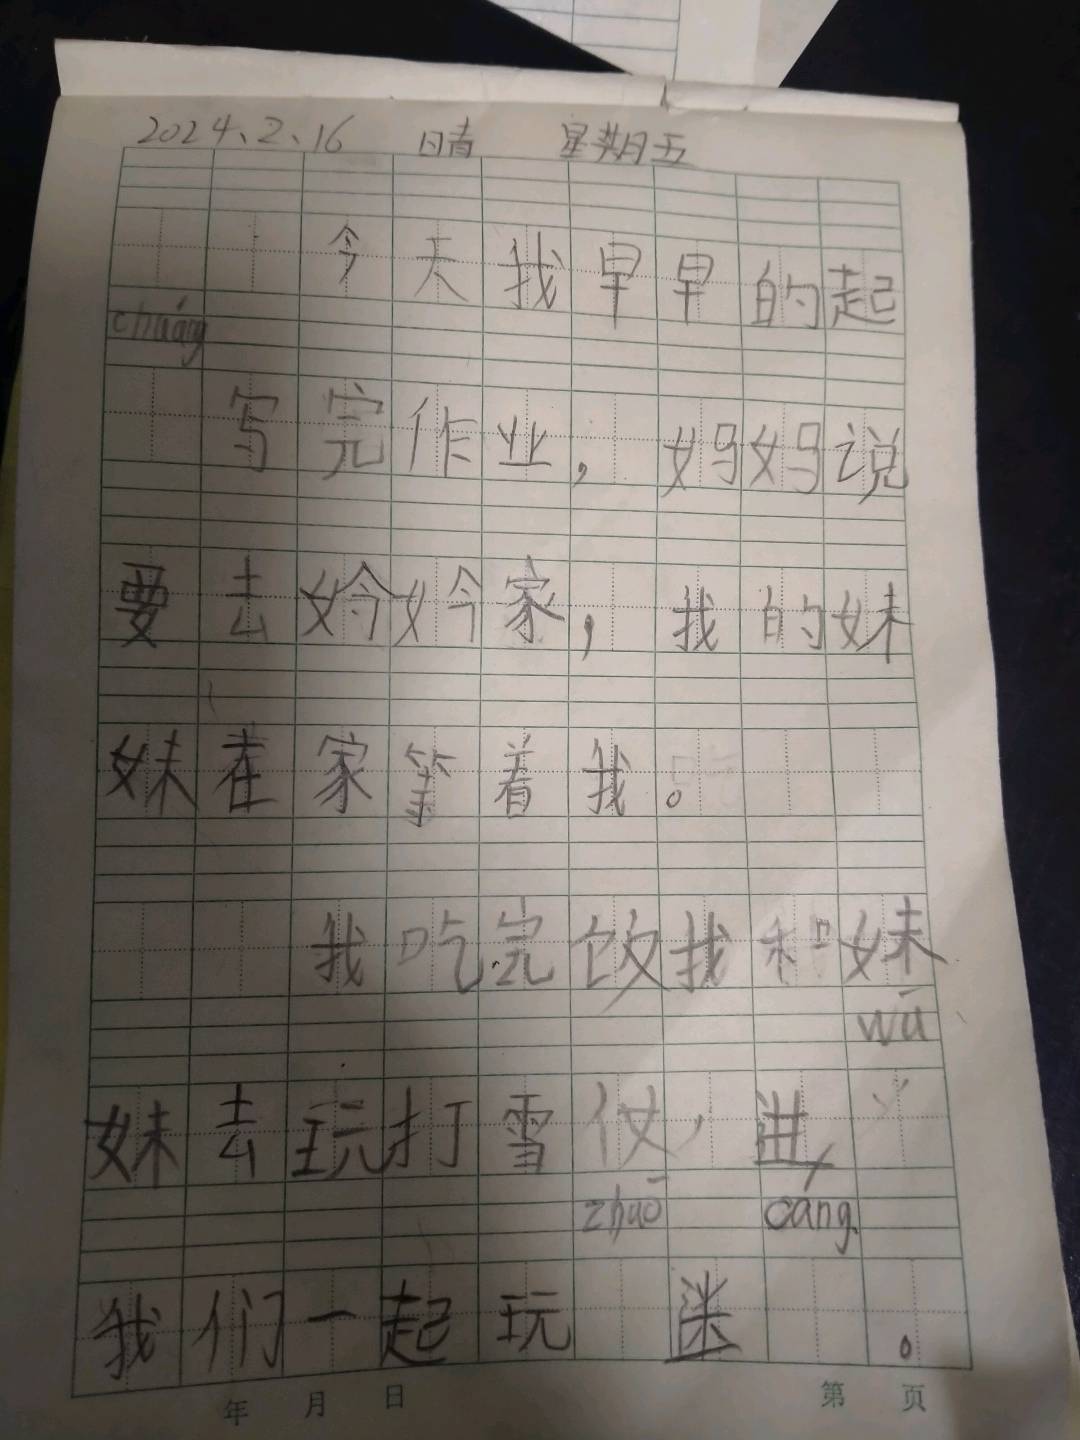 2024、2、16 晴 星期五
今天我早早的起
chuáng
写完作业，妈妈说
要去妗妗家，我的妹
妹在家等着我。
我吃完饭我和妹
wū
妹去玩打雪仗，进
zhuō cáng
我们一起玩 迷 。
年 月 日 第 页